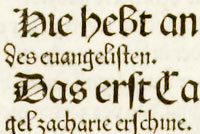 Hie hebt an
des euangelisten.
Das erst Ca
gel zacharie erschine.